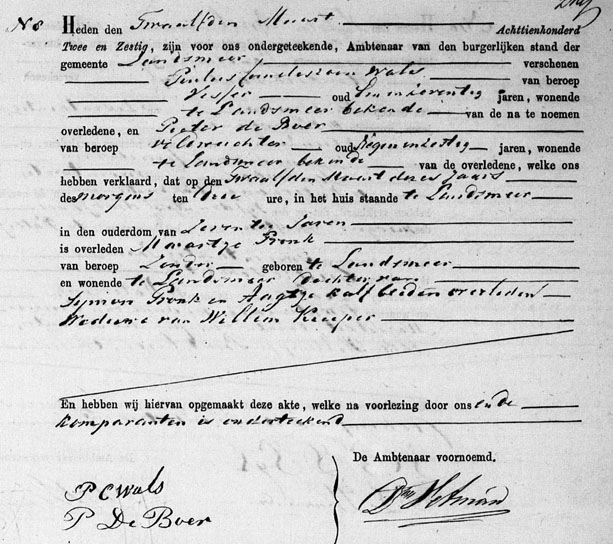 N 8 Heden den Twaalfden Maart Achttienhonderd
Twee en Zestig, zijn voor ons ondergeteekende, Ambtenaar van den burgerlijken stand der
gemeente Landsmeer verschenen
Pieter Corneliszoon Wals van beroep
Visser oud jaren, wonende
te Landsmeer bekende van de na te noemen
overledene, en Pieter de Boer
van beroep Veldwachter oud Negen en zestig jaren, wonende
te Landsmeer bekende van de overledene, welke ons
hebben verklaard, dat op den Twaalfden Maart dezes jaars
des morgens ten Drie ure, in het huis staande te Landsmeer
in den ouderdom van Zeventig Jaren
is overleden Maartje Pronk
van beroep Zonder geboren te Landsmeer
en wonende te Landsmeer Dochter van
Symon Pronk en Aagtje Kalf beiden overleden
Weduwe van Willem Kuiper
En hebben wij hiervan opgemaakt deze akte, welke na voorlezing door ons en de
komparanten is onderteekend
De Ambtenaar voornoemd.
P C Wals
P De Boer